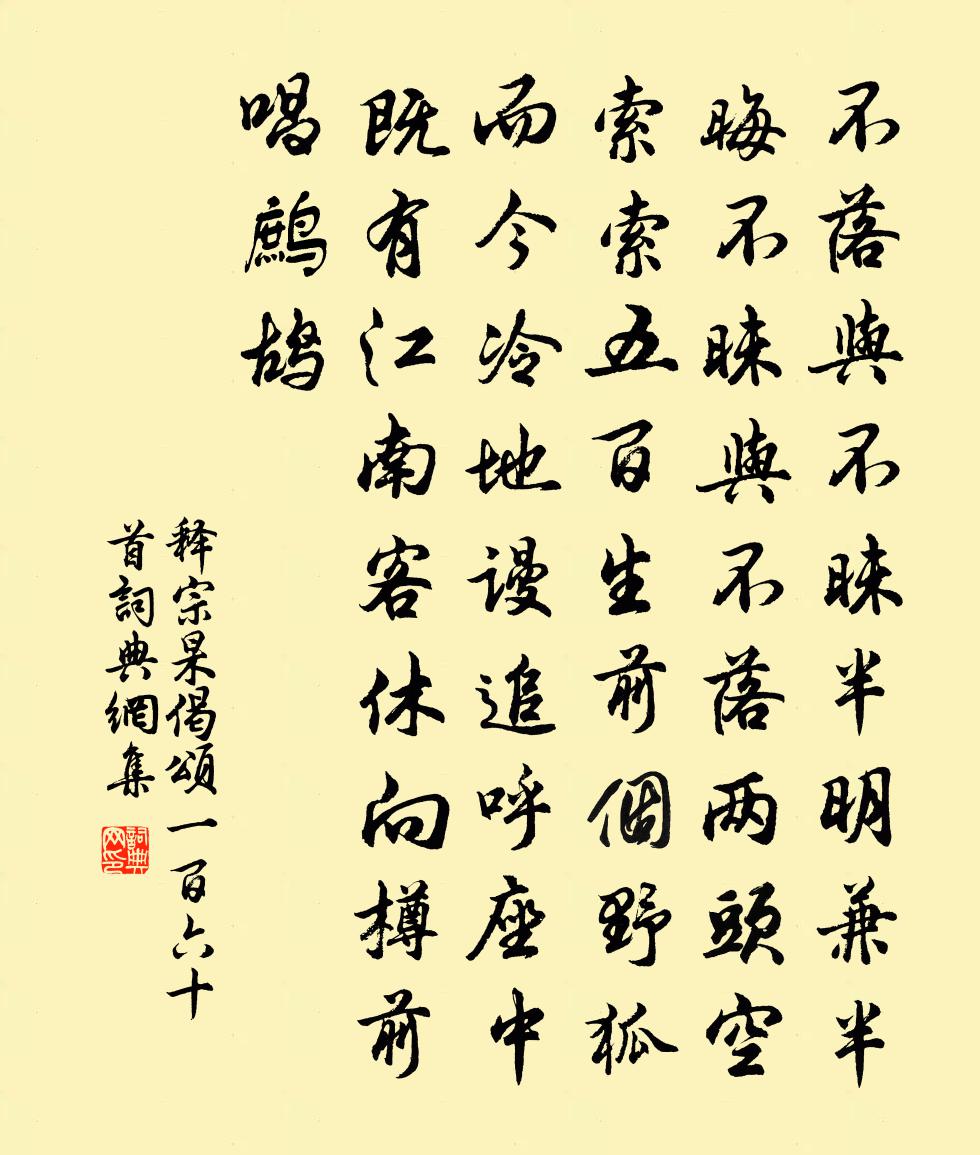 不落與不昧半明兼半
晦不昧與不落两頭空
索索五百生前個野狐
而今冷地谩追呼座中
既有江南客休向樽前
唱鹧鸪
释宗杲偈頌一百六十
首詞典網集
詞典网印